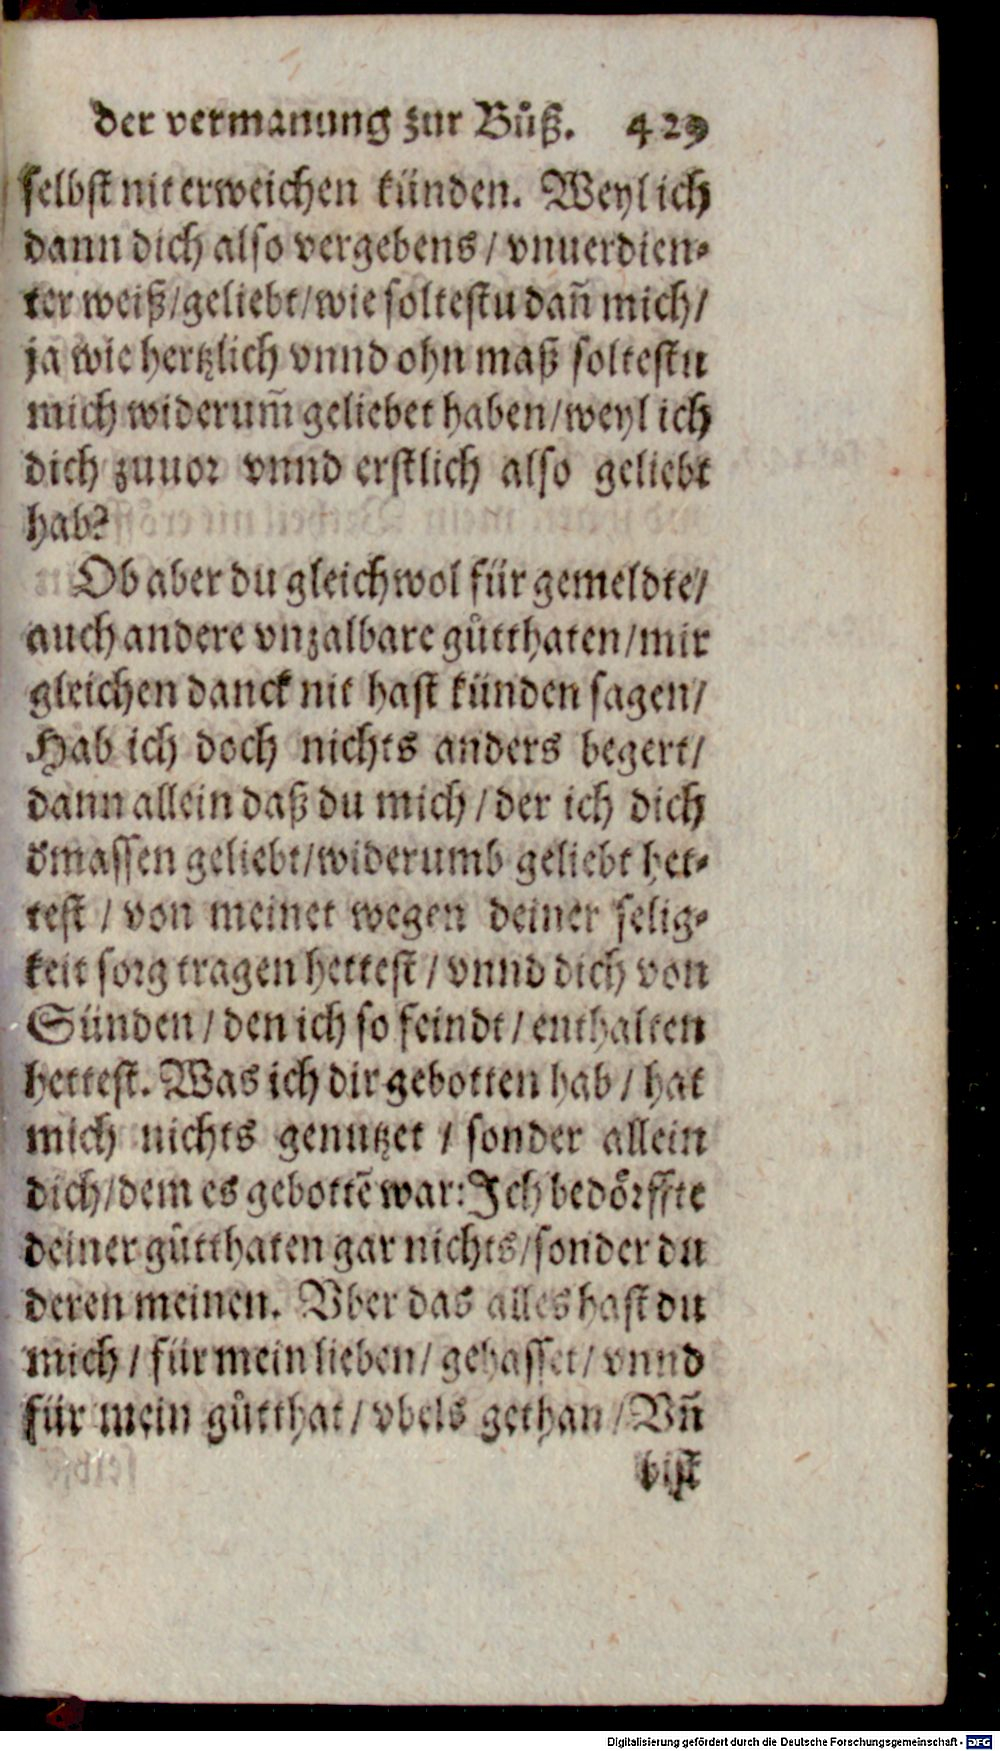 der vermanung zur Bůß. 429
selbst nit erweichen künden. Weyl ich
dann dich also vergebens / vnuerdien-
ter weiß / geliebt / wie soltestu dañ mich /
ja wie hertzlich vnnd ohn maß soltestu
mich widerum̃ geliebet haben / weyl ich
dich zuuor vnnd erstlich also geliebt
hab?
Ob aber du gleichwol für gemeldte /
auch andere vnzalbare gůtthaten / mir
gleichen danck nit hast künden sagen /
Hab ich doch nichts anders begert /
dann allein daß du mich / der ich dich
dmassen geliebt / widerumb geliebt het-
test / von meinet wegen deiner selig-
keit sorg tragen hettest / vnnd dich von
Sünden / den ich so feindt / enthalten
hettest. Was ich dir gebotten hab / hat
mich nichts genutzet / sonder allein
dich / dem es gebottē war: Ich bedörffte
deiner gůtthaten gar nichts / sonder du
deren meinen. Vber das alles hast du
mich / für mein lieben / gehasset / vnnd
für mein gůtthat / vbels gethan / Vñ
bist
Digitalisierung gefördert durch die Deutsche Forschungsgemeinschaft - DFG